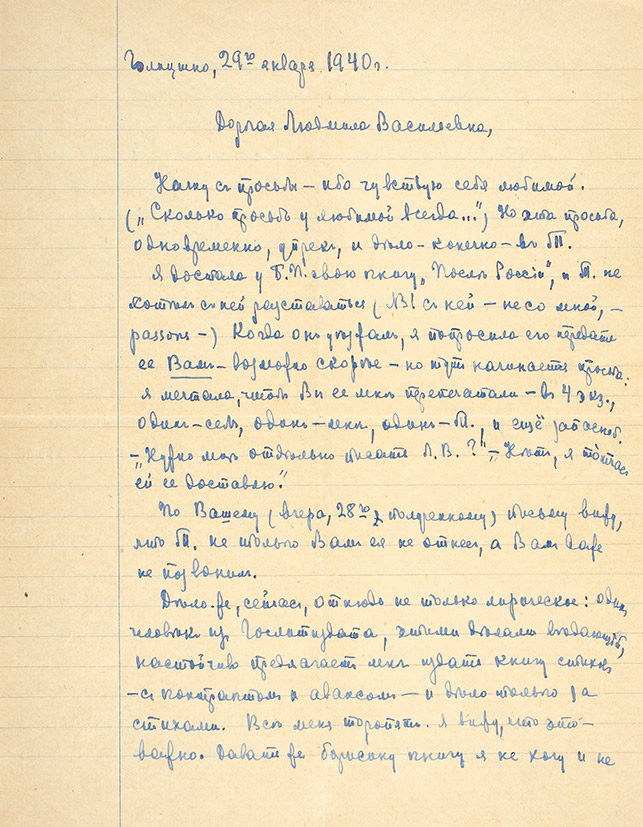 Голицыно, 29го января 1940 г.
Дорогая Людмила Васильевна,
Начну съ просьбы – ибо чувствую себя любимой.
(„Сколько просьбъ у любимой всегда...") Но эта просьба,
одновременно, упрекъ, и дѣло – конечно – въ Т.
Я достала у Б.П. свою книгу „Послѣ Россіи", и Т. не
хотѣлъ съ ней разставаться (NB! съ ней – не со мной, –
passons –) Когда онъ уѣзжалъ, я попросила его передать
ее Вамъ – возможно скорѣе – но тутъ начинается просьба:
я мечтала, чтобы Вы ее мнѣ перепечатали – въ 4 экз.,
одинъ – себѣ, одинъ – мнѣ, одинъ – Т., и ещё запасной.
– „Нужно мнѣ отдѣльно писать Л. В.?" – „Нѣтъ, я тотчасъ
ей ее доставлю."
По Вашему (вчера, 28го, полученному) письму вижу,
что Т. не только Вамъ ея не отнесъ, а Вамъ даже
не позвонилъ.
Дѣло-же, сейчасъ, отнюдь не только лирическое: одинъ
человѣкъ изъ Гослитиздата, этими дѣлами вѣдающій,
настойчиво предлагаетъ мнѣ издать книгу стиховъ
– съ контрактомъ и авансомъ – и дѣло только за
стихами. Всѣ меня торопятъ. Я вижу, что это –
важно. Давать же Борисину книгу я не хочу и не